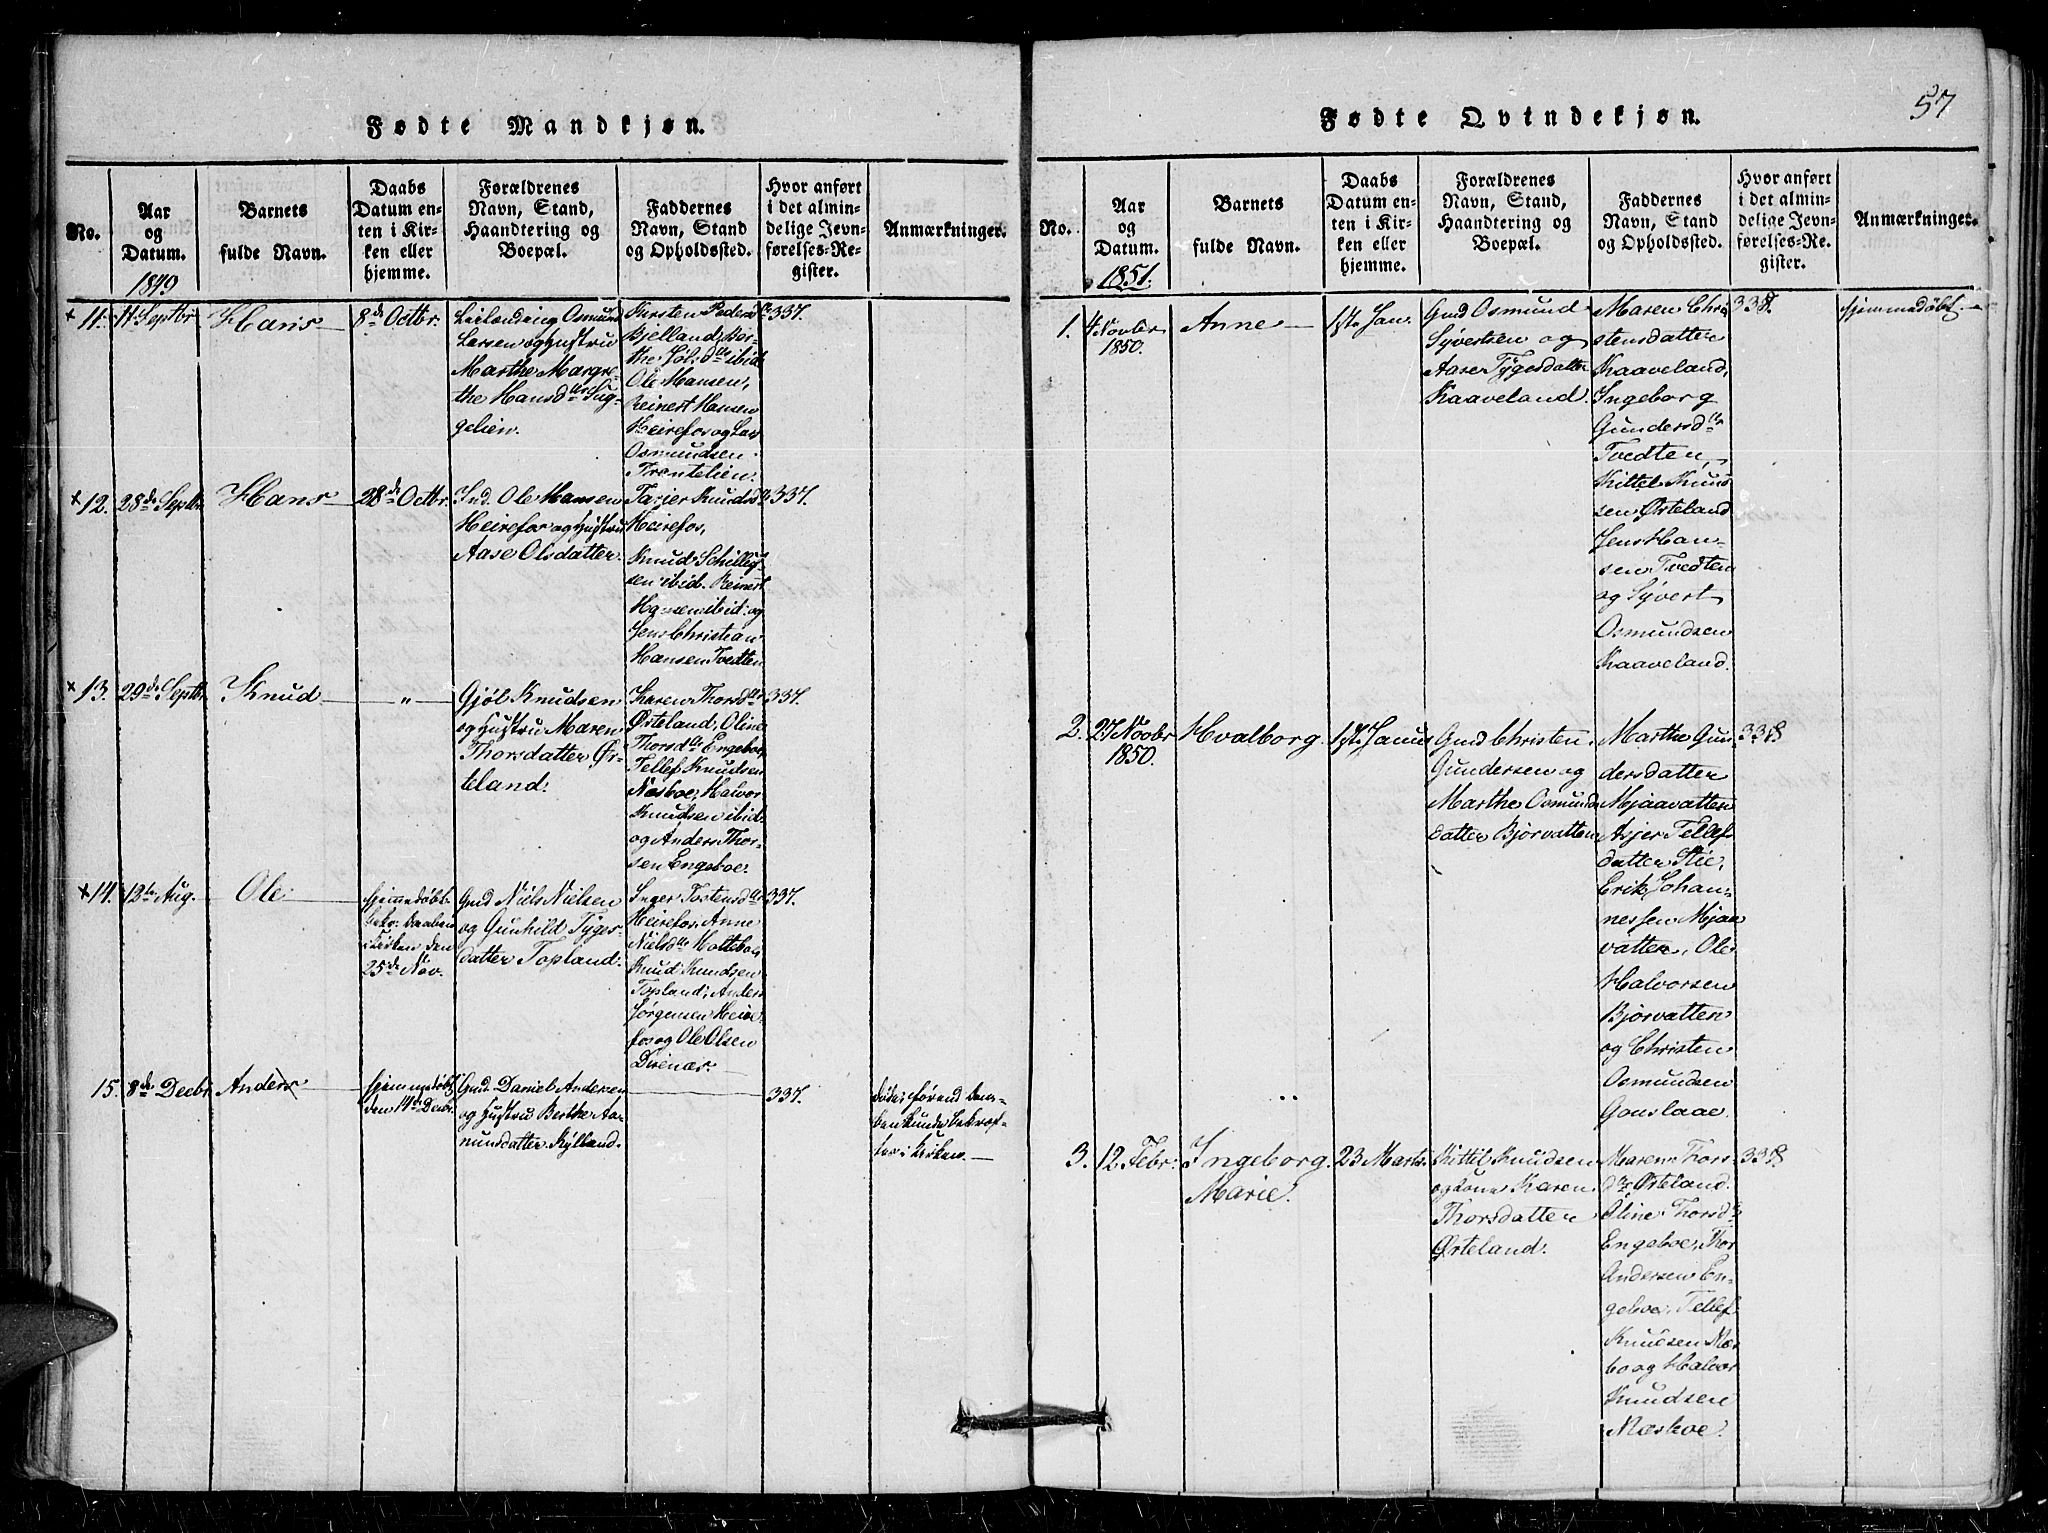 Fødte Mandkjøn.
No.
Aar
og
Datum.
1849
Barnets
fulde Navn.
Daabs
Datum en-
ten i Kir-
ken eller
hjemme.
Forældrenes
Navn, Stand,
Haandtering og
Boepæl.
Faddernes
Navn, Stand
og Opholdssted.
Hvor anført
i det almin-
delige Jevn-
førelses-Re-
gister.
Anmærkninger.
+ 11.
11 Septbr
Hans
8de Octbr.
Osmund
Larsen og Hustru
Marthe Margre-
the Hansdtr
gelien.
Kirsten Peders
Kjelland, Dor-
the ibid
Ole Hansen,
Reinert Hansen
Heirefos og Lars
Osmundsen
Trontelien.
337.
+ 12.
28de Septbr.
Hans
28de Octbr.
Ind. Ole Hansen
Heirefos og Hustru
Aase Olsdatter.
Tarjer Knudsdtr
Heirefos,
Knud
sen ibid. Reinert
Hansen ibid: og
Jens Christian
Hansen Tvedten
337.
+ 13.
29de Septbr.
Knud
"
Gjøl Knudsen
og Hustru Maren
Thorsdatter Ør-
teland.
Karen Thorsdtr
Ørteland, Oline
Thorsdtr Engeboe,
Tellef Knudsen
Næsboe, Halvor
Knudsen ibid.
og Anders Thor-
sen Engeboe.
337.
+ 14.
12te Aug.
Ole
hjemmedøbt.
Daaben
i Kirken den
25de Nov.
Gmd Niels Nielsen
og Gunhild Tyges-
datter Topland.
Inger Tostensdtr
Heirefos, Anne
Nielsdtr
Knud Knudsen
Topland, Anders
Jørgensen Heire-
fos og Ole Olsen
Direnæs.
337.
15.
8de Decbr
Anders
hjemmedøbt
den 14de Decbr.
Gmd. Daniel Andersen
og Hustru Berthe Aa-
nunsdatter Kylland.
337.
døde, førend Daa-
ben kunde bekræf-
tes i Kirken.
57
Fødte Qvindekjøn.
No.
Aar
og
Datum.
1851.
Barnets
fulde Navn.
Daabs
Datum en-
ten i Kir-
ken eller
hjemme.
Forældrenes
Navn, Stand,
Haandtering og
Boepæl.
Faddernes
Navn, Stand
og Opholdssted.
Hvor anført
i det almin-
delige Jevn-
førelses-Re-
gister.
Anmærkninger.
1.
4 Novbr
1850.
Anne
1ste Jan.
Gmd Osmund
Syvertsen og
Aase Tygesdatter
Kaaveland.
Maren Chri
stensdatter
Kaaveland,
Ingeborg
Gundersdtr
Tvedten,
Kittel Knud
sen Ørteland
Jens Han-
sen Tvedten
og Syvert
Osmundsen
Kaaveland.
338.
hjemmedøbt.
2.
27 Novbr
1850.
Hvalborg
1ste Januar
Gmd Christen
Gundersen og
Marthe Osmunds
datter Bjørvatten
Marthe Gun-
dersdatter
Mjaavatten
Asjer Tellefs
datter Stie,
Erik Johan-
nessen Mjaa
vatten, Ole
Halvorsen
Bjørvatten
og Christen
Osmundsen
Gonslaae.
338
"
3.
12 Febr.
Ingeborg
Marie.
23 Marts.
Kittil Knudsen
og Kone Karen
Thorsdatter
Ørteland.
Maren Thors
dtr Ørteland.
Oline Thorsdtr
Engeboe, Thor
Andersen En-
geboe, Tellef
Knudsen Næs-
bo og Halvor
Knudsen
Næsboe.
338